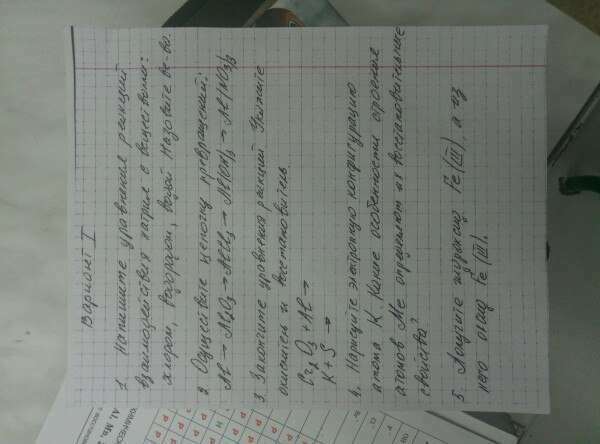 Вариант I
1. Напишите уравнения реакций
взаимодействия натрия с веществами:
хлором, водородом, водой. Назовите ве-ва.
2. Осуществите цепочку превращений:
Al → Al₂O₃ → AlCl₃ → Al(OH)₃ → Al(NO₃)₃
3. Закончите уравнения реакций. Укажите
окислитель и восстановитель.
Cr₂O₃ + Al →
K + S →
4. Нарисуйте электронную конфигурацию
атома K. Какие особенности строения
атомов Ме определяют их восстановительные
свойства?
5. Получите гидроксид Fe (III), а из
него оксид Fe (III).